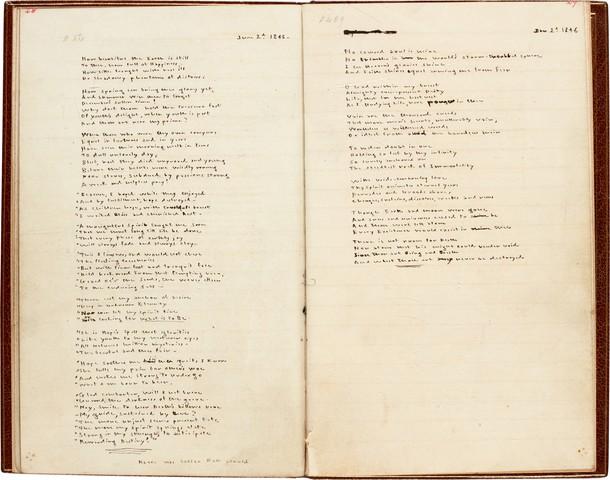 June 2d 1845.
How beautiful the Earth is still
To thee, how full of Happiness
How little fraught with real ill
Or shadowy phantoms of distress;
How Spring can bring thee glory yet
And Summer win thee to forget
December's sullen time!
Why dost thou hold the treasure fast
Of youth's delight, when youth is past
And thou art near thy prime?
When those who were thy own compeers,
Equal in fortunes and in years
Have seen their morning melt in tears
To dull unlovely day;
Blest, had they died unproved and young
Before their hearts were wildly wrung
Poor slaves, subdued by passions strong
A weak and helpless prey!
"Because, I hoped while they enjoyed
"And by fulfilment, hope destroyed
"As children hope, with trustful breast
"I waited Bliss and cherished Rest.
"A thoughtful Spirit taught me soon
"That we must long till life be done
"That every phase of earthly joy
"Will always fade and always cloy
"This I foresaw, and would not chase
"The fleeting treacheries
"But with firm foot and tranquil face
"Held backward from that tempting race,
"Gazed o'er the sands, the waves efface
"To the enduring seas
"There cast my anchor of Desire
"Deep in unknown Eternity
"Nor ever let my Spirit tire
"With looking for What is to Be
"It is Hope's spell that glorifies
"Like youth to my maturer eyes
"All Nature's million mysteries
"The fearful and the fair
"Hope soothes me in the griefs I know
"She lulls my pain for others' woe
"And makes me strong to undergo
"What I am born to bear.
"Glad comforter, will I not brave
"Unawed the darkness of the grave
"Nay, smile to hear Death's billows rave
"My Guide, sustained by thee?
"The more unjust seems present fate
"The more my Spirit springs elate
"Strong in thy strength, to anticipate
"Rewarding Destiny!"
Jan 2d 1846
No coward soul is mine
No trembler in the world's storm-troubled sphere
I see Heaven's glories shine
And Faith shines equal arming me from Fear
O God within my breast
Almighty ever-present Deity
Life, that in me hast rest
As I Undying Life, have power in thee
Vain are the thousand creeds
That move men's hearts, unutterably vain,
Worthless as withered weeds
Or idlest froth amid the boundless main
To waken doubt in one
Holding so fast by thy infinity
So surely anchored on
The steadfast rock of Immortality
With wide-embracing love
Thy Spirit animates eternal years
Pervades and broods above,
Changes, sustains, dissolves, creates and rears
Though Earth and moon were gone
And suns and universes ceased to be
And thou wert left alone
Every Existence would exist in thee
There is not room for Death
Nor atom that his might could render void
Since thou art Being and Breath
And what thou art may never be destroyed